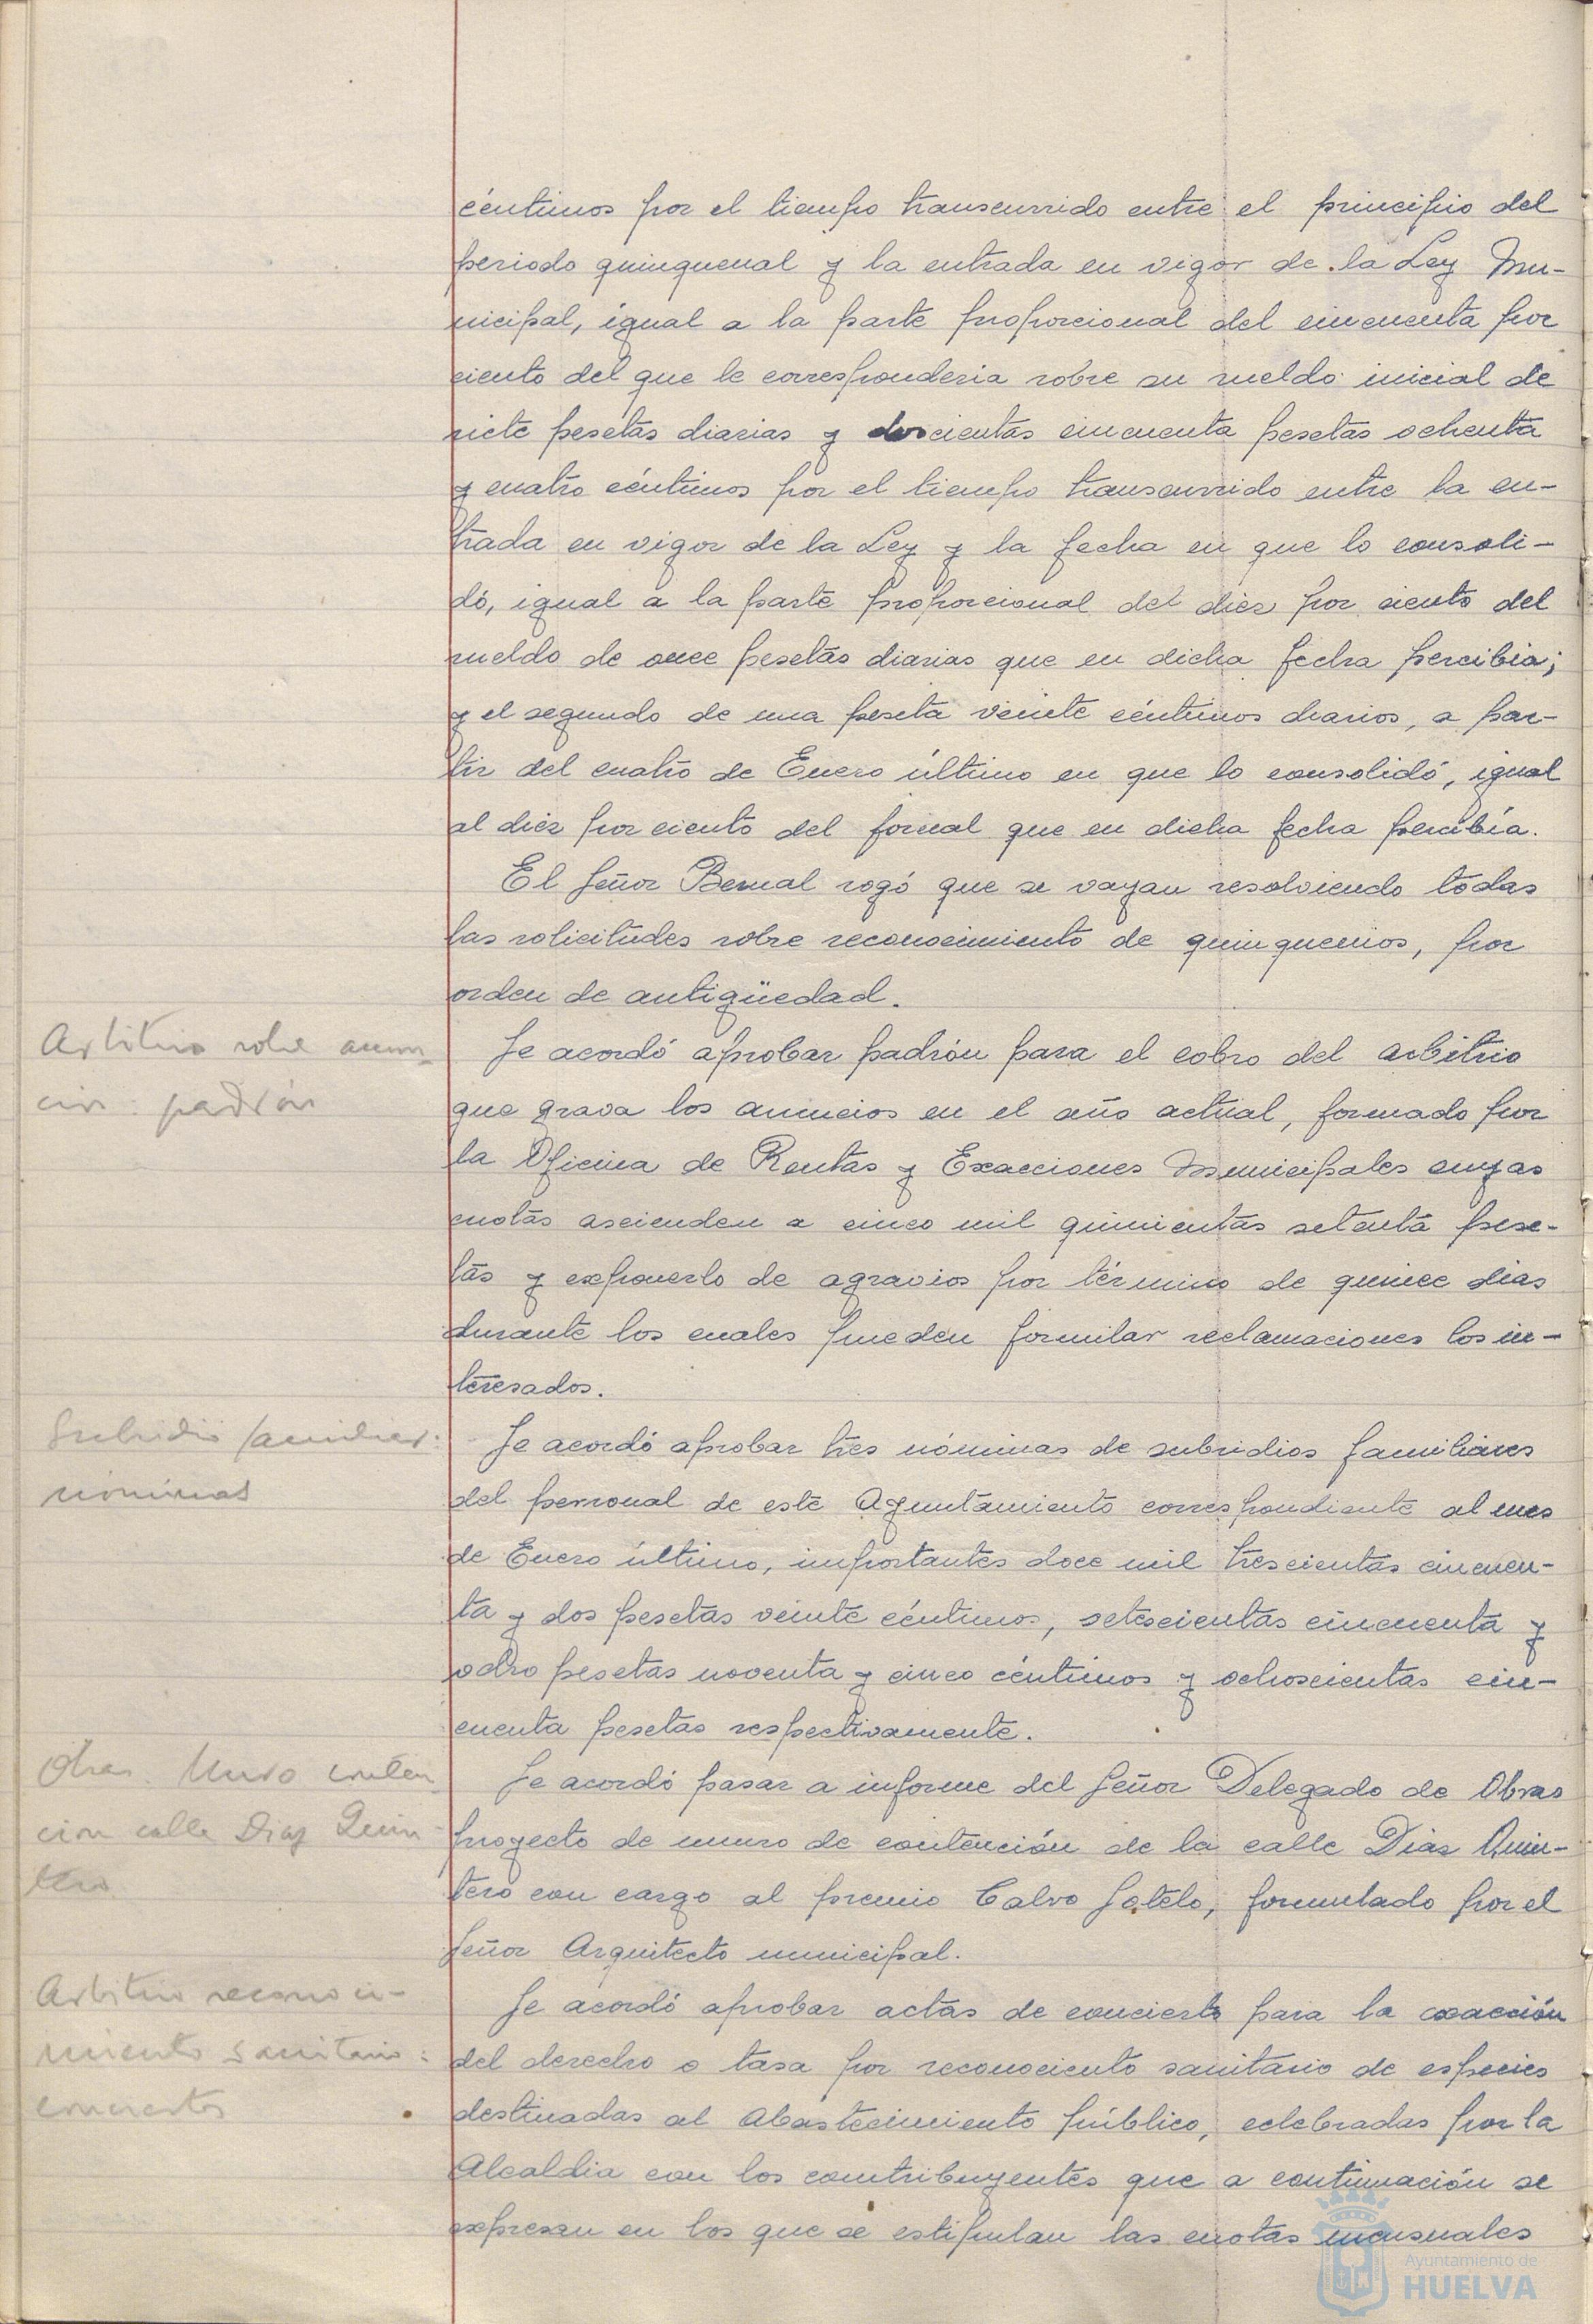 céntimos por el tiempo transcurrido entre el principio del
periodo quinquenal y la entrada en vigor de la Ley Mu-
nicipal, igual a la parte proporcional del cincuenta por
ciento del que le correspondería sobre su sueldo inicial de
siete pesetas diarias y doscientas cincuenta pesetas ochenta
y cuatro céntimos por el tiempo transcurrido entre la en-
trada en vigor de la Ley y la fecha en que lo consoli-
dó, igual a la parte proporcional del diez por ciento del
sueldo de once pesetas diarias que en dicha fecha percibia;
y el segundo de una peseta veinte céntimos diarios, a par-
tir del cuatro de Enero último en que lo consolidó, igual
al diez por ciento del jornal que en dicha fecha percibía.
El Señor Bernal rogó que se vayan resolviendo todas
las solicitudes sobre reconocimiento de quinquenios, por
orden de antigüedad.
Arbitrio sobre anun-
cios: padrón
Se acordó aprobar padrón para el cobro del arbitrio
que grava los anuncios en el año actual, formado por
la Oficina de Rentas y Exacciones Municipales cuyas
cuotas ascienden a cinco mil quinientas setenta pese-
tas y exponerlo de agravios por término de quince dias
durante los cuales pueden formular reclamaciones los in-
teresados.
Subsidio familiar:
nóminas
Se acordó aprobar tres nóminas de subsidios familiares
del personal de este Ayuntamiento correspondiente al mes
de Enero último, importantes doce mil trescientas cincuen-
ta y dos pesetas veinte céntimos, setescientas cincuenta y
ocho pesetas noventa y cinco céntimos y ochoscientas cin-
cuenta pesetas respectivamente.
Obras. Muro conten
cion calle Diaz Quin
tero
Se acordó pasar a informe del Señor Delegado de Obras
proyecto de muro de contención de la calle Diaz Quin-
tero con cargo al premio Calvo Sotelo, formulado por el
Señor Arquitecto municipal.
Arbitrio reconoci-
miento sanitario:
conciertos
Se acordó aprobar actas de concierto para la exacción
del derecho o tasa por reconociento sanitario de especies
destinadas al Abastecimiento público, celebradas por la
Alcaldia con los contribuyentes que a continuación se
expresan en los que se estipulan las cuotas mensuales
Ayuntamiento de
HUELVA